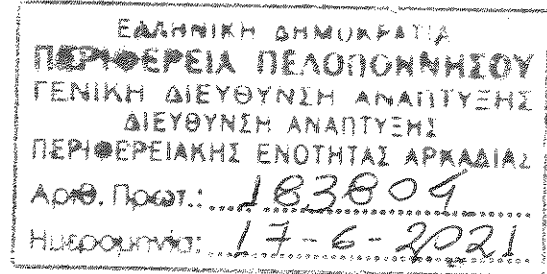 ΕΛΛΗΝΙΚΗ ΔΗΜΟΚΡΑΤΙΑ
ΠΕΡΙΦΕΡΕΙΑ ΠΕΛΟΠΟΝΝΗΣΟΥ
ΓΕΝΙΚΗ ΔΙΕΥΘΥΝΣΗ ΑΝΑΠΤΥΞΗΣ
ΔΙΕΥΘΥΝΣΗ ΑΝΑΠΤΥΞΗΣ
ΠΕΡΙΦΕΡΕΙΑΚΗΣ ΕΝΟΤΗΤΑΣ ΑΡΚΑΔΙΑΣ
Αριθ. Πρωτ.: 183804
Ημερομηνία: 17-6-2021